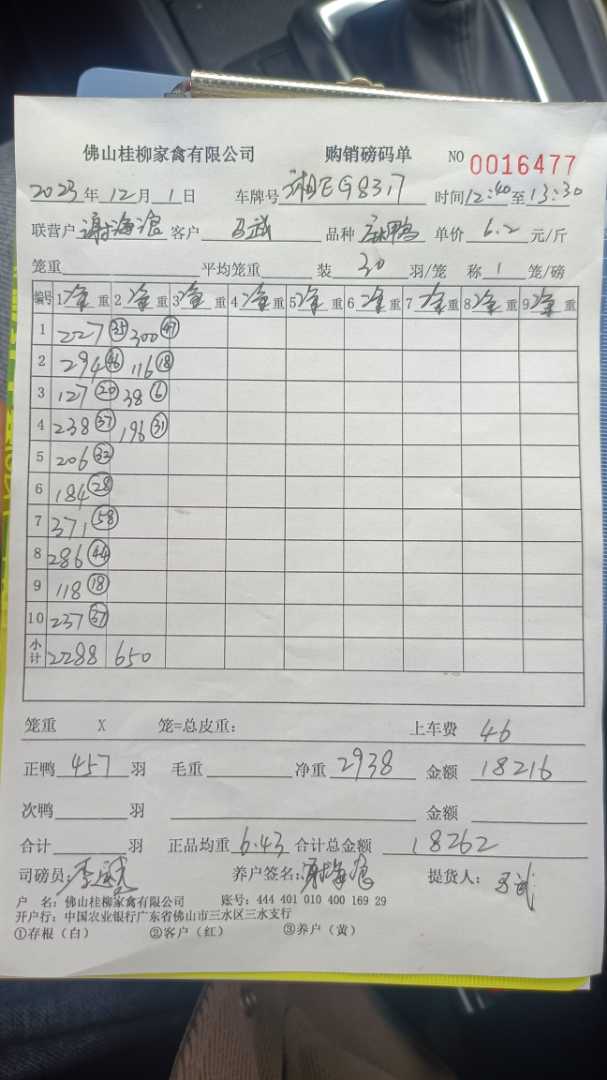 佛山桂柳家禽有限公司 购销磅码单 NO 0016477
2023年 12月 1日 车牌号 湘EG83,7 时间 12:40 至 13:30
联营户 谢海滄 客户 马武 品种 麻鸭 单价 6.2 元/斤
笼重 平均笼重 装 30 羽/笼 称 1 笼/磅
编号 1净重 2净重 3净重 4净重 5净重 6净重 7净重 8净重 9净重
1 227 35 300 47
2 294 46 116 18
3 127 20 38 6
4 238 37 196 31
5 206 32
6 184 28
7 371 58
8 286 44
9 118 18
10 237 37
小计 2288 650
笼重 X 笼=总皮重: 上车费 46
正鸭 457 羽 毛重 净重 2938 金额 18216
次鸭 羽 金额
合计 羽 正品均重 6.43 合计总金额 18262
司磅员: 养户签名: 提货人: 马武
户 名: 佛山桂柳家禽有限公司 账号: 444 401 010 400 169 29
开户行: 中国农业银行广东省佛山市三水区三水支行
①存根(白) ②客户(红) ③养户(黄)